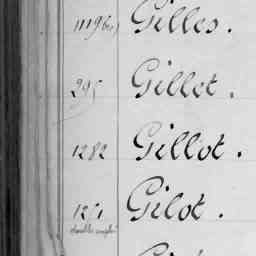 1119bis) Gilles.
295 Gillet.
1282 Gillot.
1251 Gilot.
double emploi